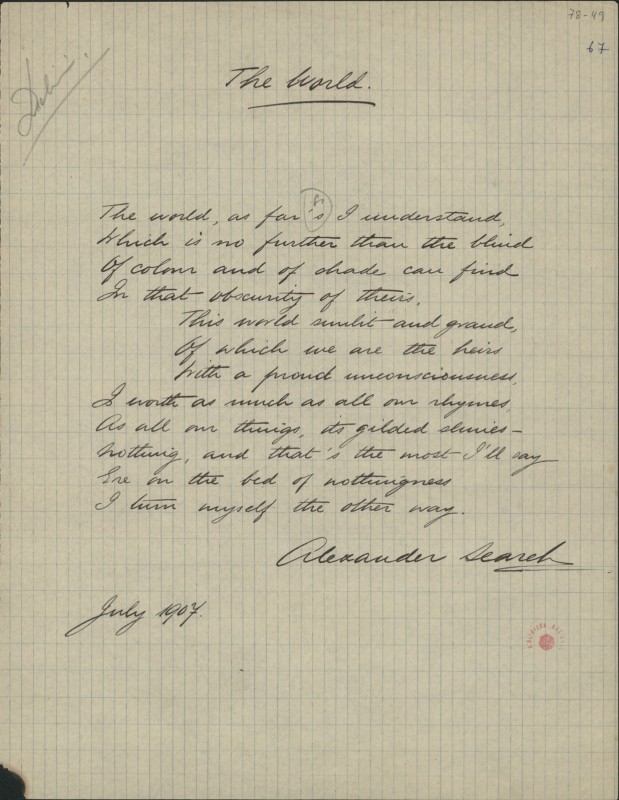 78-49
67
Delirium.
The World.
The world, as far 's I understand,
Which is no further than the blind
Of colour and of shade can find
In that obscurity of theirs,
This world sunlit and grand,
Of which we are the heirs
With a proud unconsciousness,
Is worth as much as all our rhymes,
As all our things, its gilded slimes –
Nothing, and that's the most I'll say
Ere on the bed of nothingness
I turn myself the other way.
Alexander Search
July 1907.